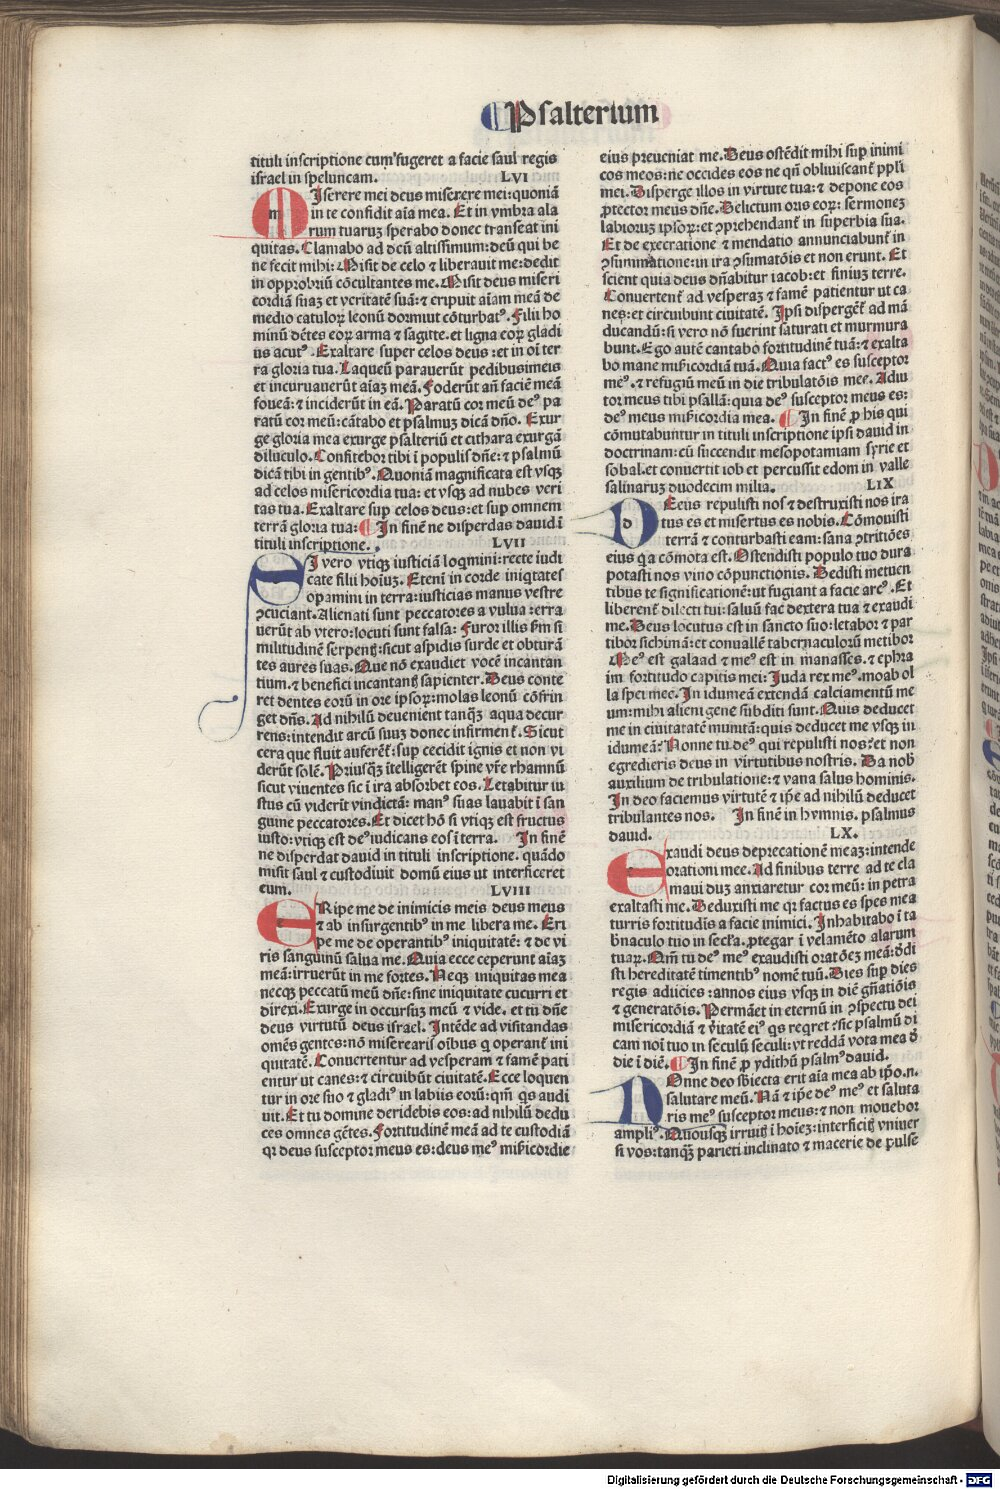 Psalterium
tituli inscriptione cum fugeret a facie saul regis
israel in speluncam. LVI
mIserere mei deus miserere mei: quoniā
in te confidit aīa mea. Et in vmbra ala
rum tuaruz sperabo donec transeat ini
quitas. Clamabo ad deū altissimum: deū qui be
ne fecit mihi: Misit de celo ⁊ liberauit me: dedit
in opprobriū cōculcantes me. Misit deus miseri
cordiā suaz et veritatē suā: ⁊ eripuit aīam meā de
medio catuloꝝ leonū dormiui cōturbatꝰ. Filii ho
minū dētes eoꝝ arma ⁊ sagitte. et ligna eoꝝ gladi
us acutꝰ. Exaltare super celos deus: et in oī ter
ra gloria tua. Laqueū parauerūt pedibus meis
et incuruauerūt aīaz meā. Foderūt añ faciē meā
foueā: ⁊ inciderūt in eā. Paratū cor meū deꝰ pa
ratū cor meū: cātabo et psalmuz dicā dño. Exur
ge gloria mea exurge psalteriū et cithara exurgā
diluculo. Confitebor tibi ī populis dñe: ⁊ psalmū
dicā tibi in gentibꝰ. Quoniā magnificata est vsqꝫ
ad celos misericordia tua: et vsqꝫ ad nubes veri
tas tua. Exaltare sup celos deus: et sup omnem
terrā gloria tua: In finē ne disperdas dauid ī
tituli inscriptione. LVII
SI vero vtiqꝫ iusticiā loqmini: recte iudi
cate filii hoiuz. Etenī in corde iniqtates
opamini in terra: iusticias manus vestre
ꝯcuciant. Alienati sunt peccatores a vulua: erra
uerūt ab vtero: locuti sunt falsa: Furor illis ẜm si
militudinē serpentꝭ: sicut aspidis surde et obturā
tes aures suas. Que nō exaudiet vocē incantan
tium. ⁊ benefici incantantꝭ sapienter. Deus conte
ret dentes eorū in ore ipsoꝝ: molas leonū cōfrin
get dñs. Ad nihilū deuenient tanqꝫ aqua decur
rens: intendit arcū suuz donec infirment̄. Sicut
cera que fluit auferēt̄: sup cecidit ignis et non vi
derūt solē. Priusqꝫ ītelligerēt spine vr̄e rhamnū
sicut viuentes sic ī ira absorbet eos. Letabitur iu
stus cū viderit vindictā: manꝰ suas lauabit ī san
guine peccatores. Et dicet hō si vtiqꝫ est fructus
iusto: vtiqꝫ est deꝰ iudicans eos ī terra. In finē
ne disperdat dauid in tituli inscriptione. quādo
misit saul ⁊ custodiuit domū eius ut interficeret
eum. LVIII
ERipe me de inimicis meis deus meus
⁊ ab insurgentibꝰ in me libera me. Eri
pe me de operantibꝰ iniquitatē: ⁊ de vi
ris sanguinū salua me. Quia ecce ceperunt aīaz
meā: irruerūt in me fortes. Neqꝫ iniquitas mea
necqꝫ peccatū meū dñe: sine iniquitate cucurri et
direxi. Exurge in occursuz meū ⁊ vide. et tu dñe
deus virtutū deus israel. Intēde ad visitandas
omēs gentes: nō miserearis oībus q operant̄ ini
quitatē. Conuertentur ad vesperam ⁊ famē pati
entur ut canes: ⁊ circuibūt ciuitatē. Ecce loquen
tur in ore suo ⁊ gladiꝰ in labiis eorū: qm̄ qs audi
uit. Et tu domine deridebis eos: ad nihilū dedu
ces omnes gētes. Fortitudinē meā ad te custodiā
qꝛ deus susceptor meus es: deus meꝰ mīcordie
eius preueniat me. Deus ostēdit mihi sup inimi
cos meos: ne occides eos ne qñ obliuiscant̄ ppl̄i
mei. Disperge illos in virtute tua: ⁊ depone eos
ꝓtector meus dñe. Delictum oris eoꝝ: sermonez
labioruz ipsoꝝ: et ꝯprehendant̄ in superbia sua.
Et de execratione ⁊ mendatio annunciabunt̄ in
ꝯsummatione: in ira ꝯsumatōis et non erunt. Et
scient quia deus dñabitur iacob: et finiuz terre.
Conuertent̄ ad vesperaz ⁊ famē patientur ut ca
nes: et circuibunt ciuitatē. Ipsi dispergēt̄ ad mā
ducandū: si vero nō fuerint saturati et murmura
bunt. Ego autē cantabo fortitudinē tuā: ⁊ exalta
bo mane mīcordiā tuā. Quia factꝰ es susceptor
meꝰ. ⁊ refugiū meū in die tribulatōis mee. Adiu
tor meus tibi psallā: quia deꝰ susceptor meus es:
deꝰ meus mīcordia mea. In finē ꝓ his qui
cōmutabuntur in tituli inscriptione ipsi dauid in
doctrinam: cū succendit mesopotamiam syrie et
sobal. et conuertit iob et percussit edom in valle
salinaruz duodecim milia. LIX
DEeus repulisti nos ⁊ destruxisti nos ira
tus es et misertus es nobis. Cōmouisti
terrā ⁊ conturbasti eam: sana ꝯtritiōes
eius qa cōmota est. Ostendisti populo tuo dura
potasti nos vino cōpunctionis. Dedisti metuen
tibus te significationē: ut fugiant a facie arcꝰ. Et
liberent̄ dilecti tui: saluū fac dextera tua ⁊ exaudi
me. Deus locutus est in sancto suo: letabor ⁊ par
tibor sichimā: et conuallē tabernaculorū metibor
Meꝰ est galaad ⁊ meꝰ est in manasses. ⁊ ephra
im fortitudo capitis mei: Iuda rex meꝰ. moab ol
la spei mee. In idumeā extendā calciamentū me
um: mihi alienigene subditi sunt. Quis deducet
me in ciuitatatē munitā: quis deducet me vsqꝫ in
idumeā? Nonne tu deꝰ qui repulisti nos? et non
egredieris deus in virtutibus nostris. Da nob
auxilium de tribulatione: ⁊ vana salus hominis.
In deo faciemus virtutē ⁊ ip̄e ad nihilū deducet
tribulantes nos. In finē in hymnis. psalmus
dauid. LX.
Exaudi deus deprecationē meaz: intende
orationi mee. Ad finibus terre ad te cla
maui duz anxiaretur cor meū: in petra
exaltasti me. Deduxisti me qꝛ factus es spes mea
turris fortitudīs a facie inimici. Inhabitabo ī ta
b̄naculo tuo in secl̄a. ꝓtegar ī velamēto alarum
tuaꝝ. Qm̄ tu deꝰ meꝰ exaudisti oratōez meā: d̄di
sti hereditatē timentibꝰ nomē tuū. Dies sup dies
regis adiicies: annos eius vsqꝫ in diē gñatiōis
⁊ generatōis. Permāet in eternū in ꝯspectu dei
misericordiā ⁊ v̄itatē eiꝰ qs reqret? sic psalmū di
cam noī tuo in seculū seculi: vt reddā vota mea d̄
die ī diē. In finē ꝓ ydithū psalmꝰ dauid.
NOnne deo sb̄iecta erit aīa mea ab ip̄o. n.
salutare meū. Nā ⁊ ip̄e deꝰ meꝰ et saluta
ris meꝰ susceptor meus: ⁊ non mouebor
ampliꝰ. Quousqꝫ irruitꝭ ī hoīez: interficitꝭ vniuer
si vos: tanqꝫ parieti inclinato ⁊ macerie de pulse
Digitalisierung gefördert durch die Deutsche Forschungsgemeinschaft - DFG